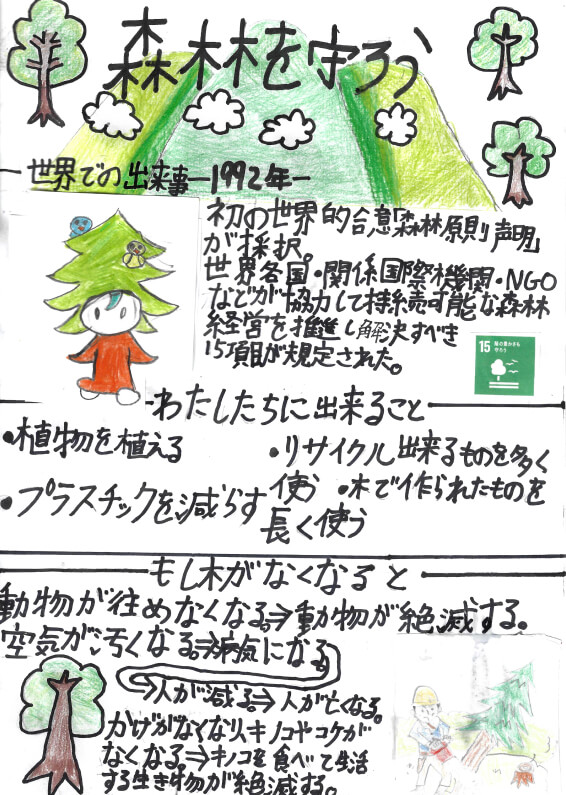 森林を守ろう
世界での出来事―1992年―
初の世界的合意「森林原則声明」
が採択。
世界各国・関係国際機関・NGO
などが協力して持続可能な森林
経営を推進し解決すべき
15項目が規定された。
15 陸の豊かさも
守ろう
わたしたちに出来ること
•植物を植える
•プラスチックを減らす
•リサイクル出来るものを多く
使う •木で作られたものを
長く使う
もし木がなくなると
動物が住めなくなる。⇒動物が絶滅する。
空気が汚くなる。⇒病気になる
⇒人が減る⇒人が亡くなる。
かげがなくなり、キノコやコケが
なくなる。⇒キノコを食べて生活
する生き物が絶滅する。